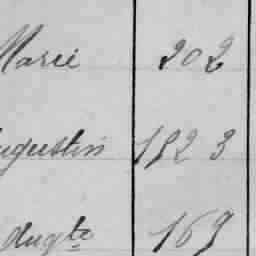 Marie 202
Augustin 1823
Augte 169